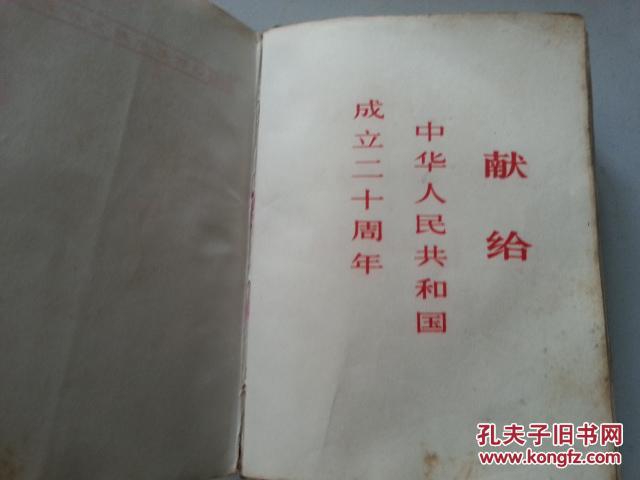 献给
中华人民共和国
成立二十周年
孔夫子旧书网
www.kongfz.com